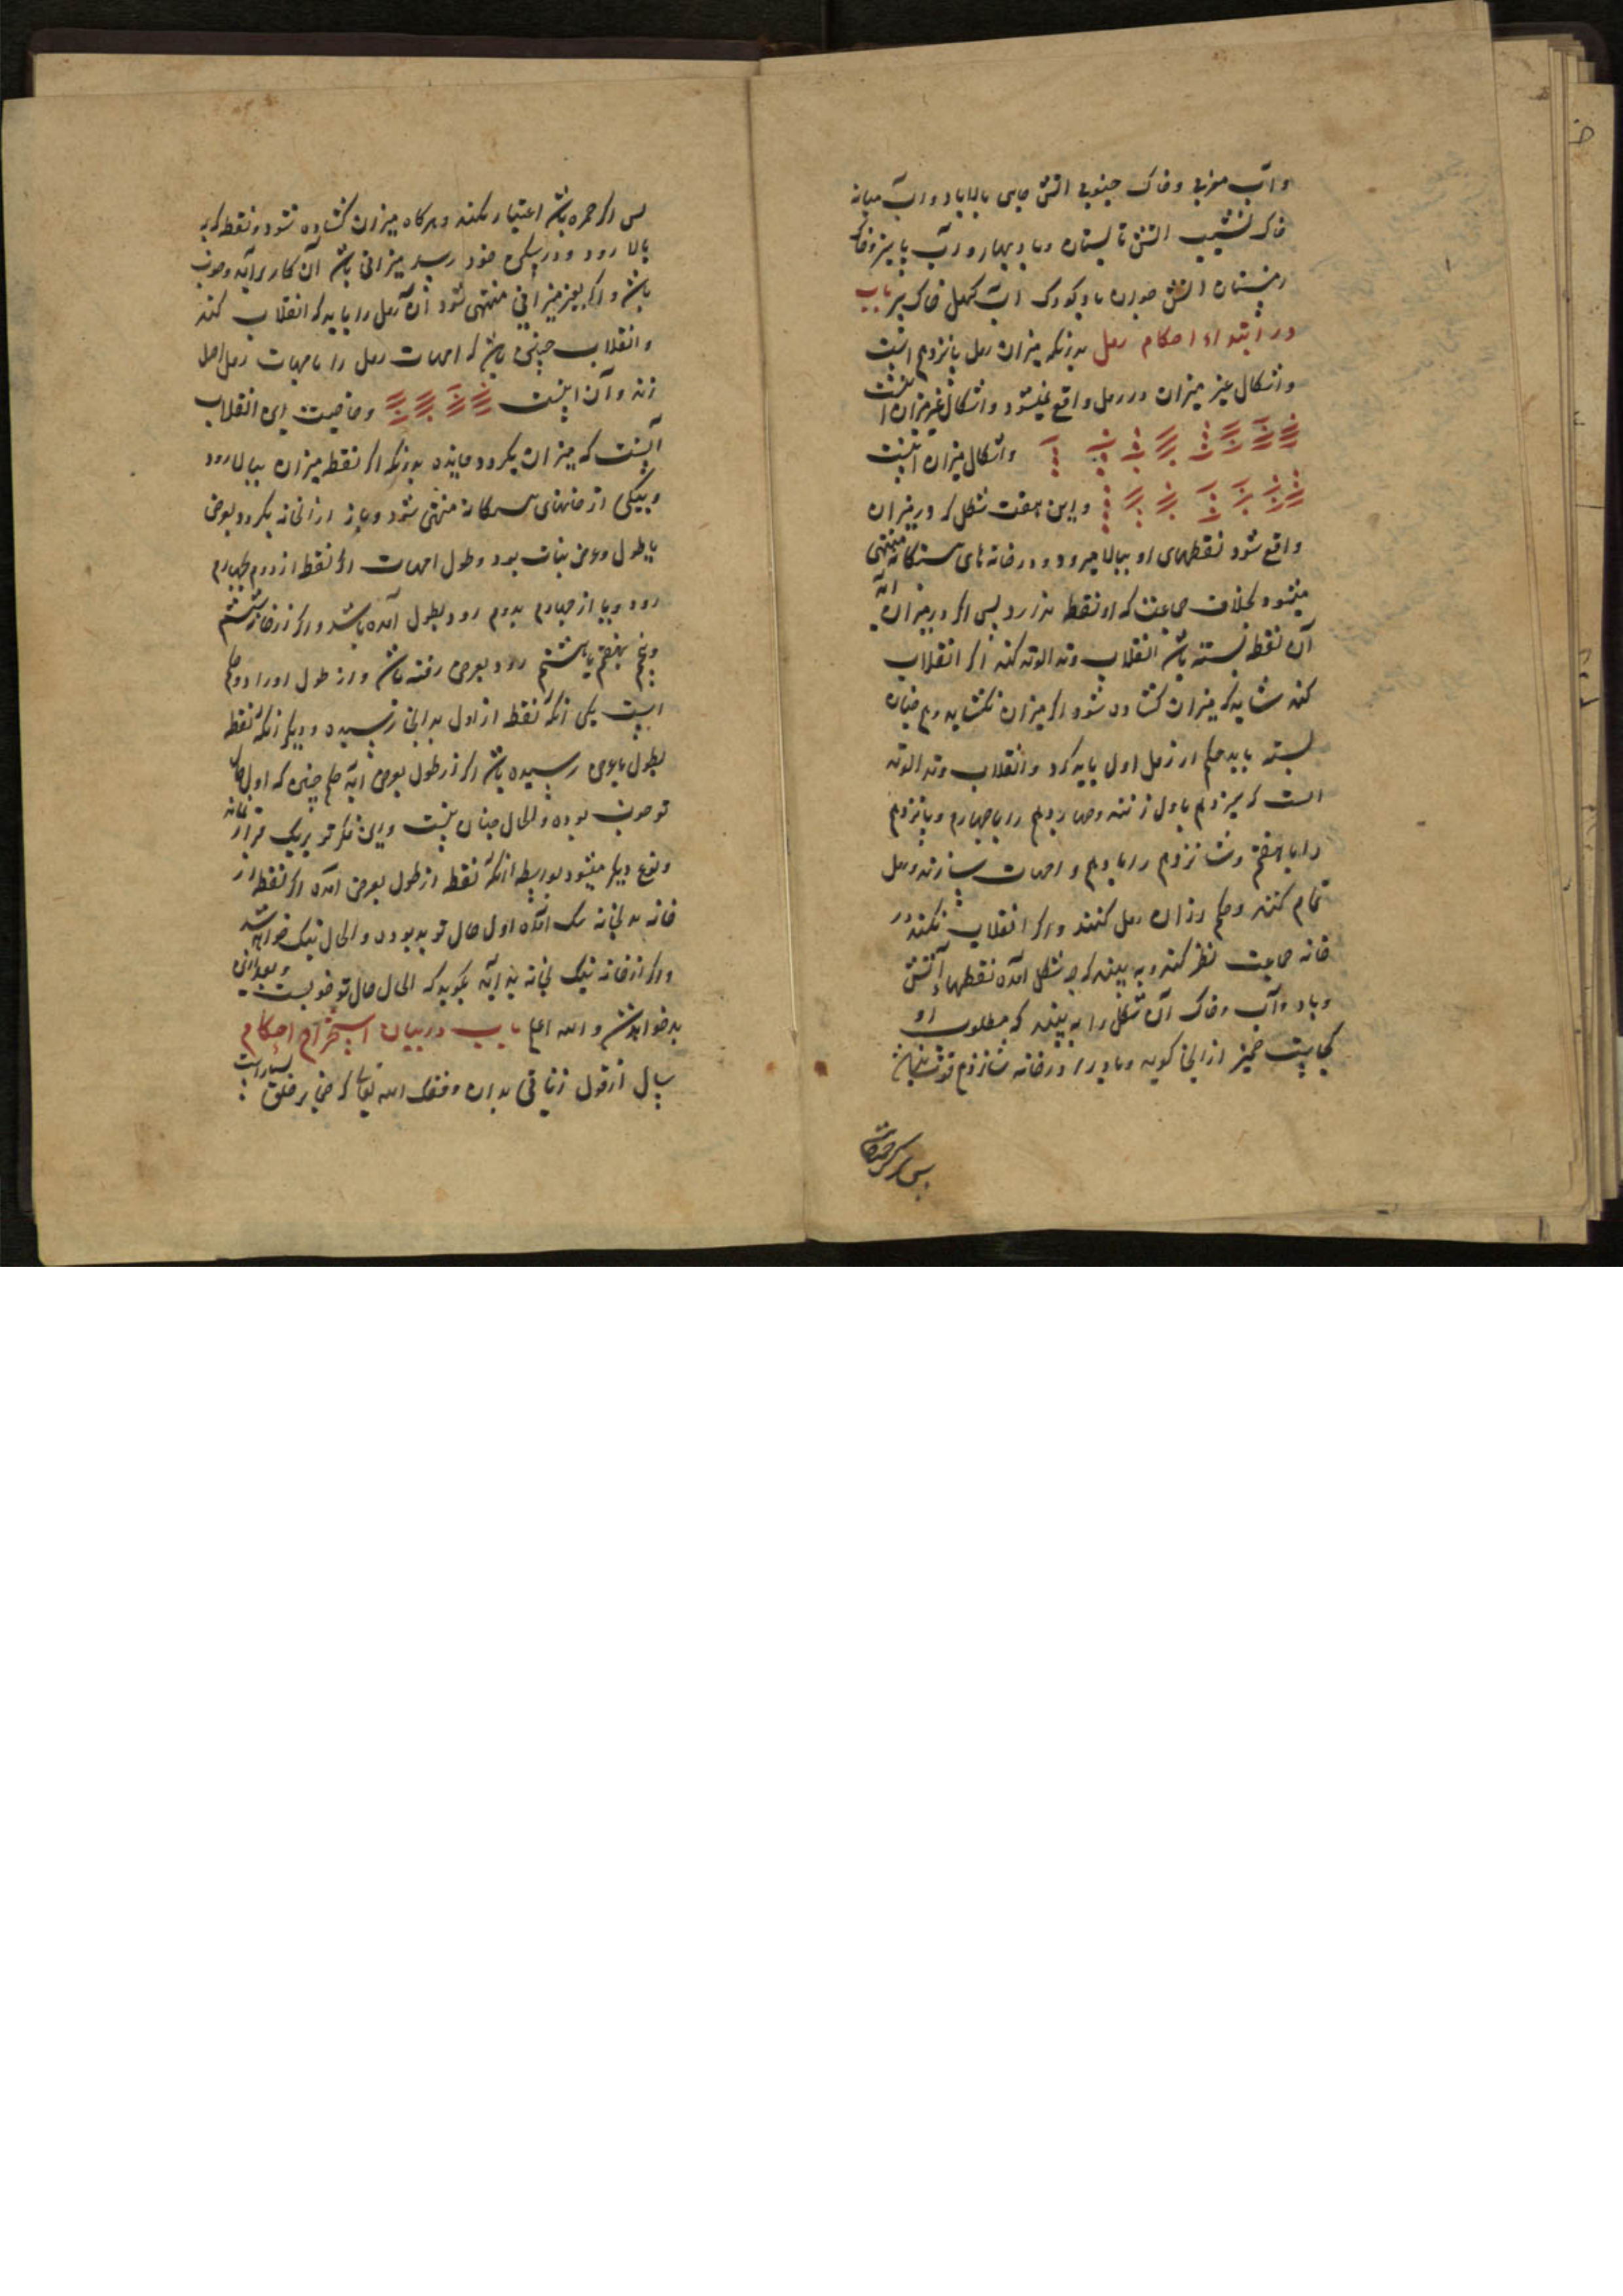 و آب مغربی و خاک جنوبی آتش جای بالا باد و آب میانه
خاک نشیب آتش تابستان و باد بهار و آب پاییز و خاک
زمستان آتش جوان باد کودک آب کهل خاک پیر باب
در ابتداء احکام رمل بدانکه میزان رمل پانزدهم است
و اشکال غیر میزان در رمل واقع نمیشود و اشکال غیر میزان اینست
و اشکال میزان اینست
و این هفت شکل که در میزان
واقع شود نقطهای او ببالا میرود و در خانه های سه‌گانه منتهی
میشود بخلاف جماعت که او نقطه ندارد پس اگر در میزان آید
آن نقطه بسته باشد انقلاب وتد الوتد کند اگر انقلاب
کند شاید که میزان گشاده شود اگر میزان نگشاید و هم چنان
بسته باید حکم از رمل اول باید کرد و انقلاب وتد الوتد
است که سیزدهم باول زنند و چهاردهم را با چهارم و پانزدهم
را با هفتم و شانزدهم را با دهم و امهات سازند و رمل
تمام کنند و حکم از آن رمل کنند و اگر انقلاب نکنند در
خانه حاجت نظر کند و به بیند که چه شکل آمده نقطهاء آتش
و باد و آب و خاک آن شکل را به بیند که مطلوب او
کجاست ضمیر از آنجا گوید و مادر را در خانه شانزدهم
پس اگر حمره باشد اعتبار نکند و هرگاه میزان گشاده شود و نقطه که
بالا رود و در شکل خود رسد میزانی باشد آن کار برآید و خوب
باشد و اگر بغیر میزانی منتهی شود آن رمل را باید که انقلاب کند
و انقلاب چنین باشد که امهات رمل را با امهات رمل اصل
زند و آن اینست و خاصیت این انقلاب
آنست که میزان بگردد بدانکه اگر نقطه میزان ببالا رود
و بیکی از خانهای سه‌گانه منتهی شود و باز از آنخانه بگردد بعرض
یا طول و عرض بنات بود و طول امهات اگر نقطه از دوم بچهارم
رود و یا از چهارم بدوم رود بطول آمده باشد و اگر از خانه ششم
و پنجم بهفتم یا هشتم رود بعرض رفته باشد و از طول او را دو حکم
است یکی آنکه نقطه از اول بدانجا رسیده و دیگر آنکه نقطه
بطول یا عرض رسیده باشد اگر از طول بعرض آید حکم چنین که اول حال
تو خوب بوده و الحال چنان نیست و این فکر تو بر یک قرار نماند
و نوع دیگر میشود بواسطه آنکه نقطه از طول بعرض آمده اگر نقطه از
خانه بد بخانه نیک آمده اول حال تو بد بوده و الحال نیک خواهد شد
و اگر از خانه نیک بخانه بد آید بگوید که الحال حال تو خوبست و بعد ازین
بد خواهد شد و الله اعلم باب در بیان استخراج احکام
سال از قول زناتی بدان وفقک الله تعالی که ضمایر خلق بسیار است
پس اگر حمره